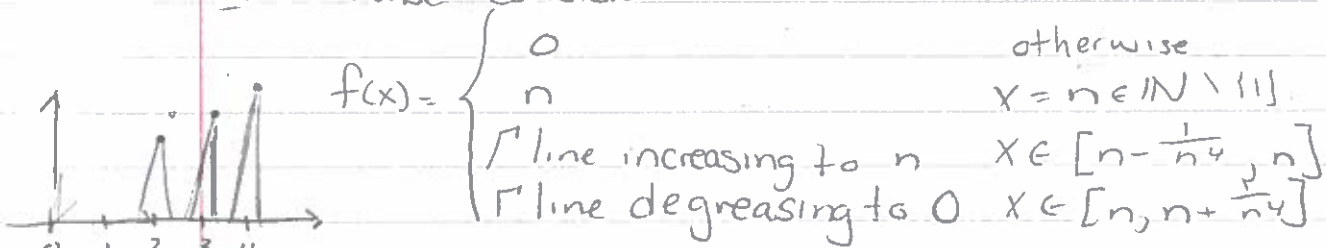 f(x) = { 0 otherwise
n x = n ∈ ℕ \ {1}
line increasing to n x ∈ [n - 1/n^4, n]
line degreasing to 0 x ∈ [n, n + 1/n^4]
0 1 2 3 4